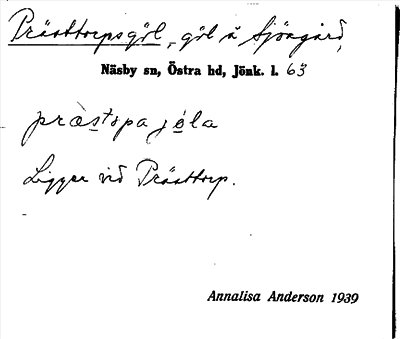 Prästtorpsgöl, göl å Sjöagård,
Näsby sn, Östra hd, Jönk. l. 63
præstopa jöla
Ligger vid Prästtorp.
Annalisa Anderson 1939